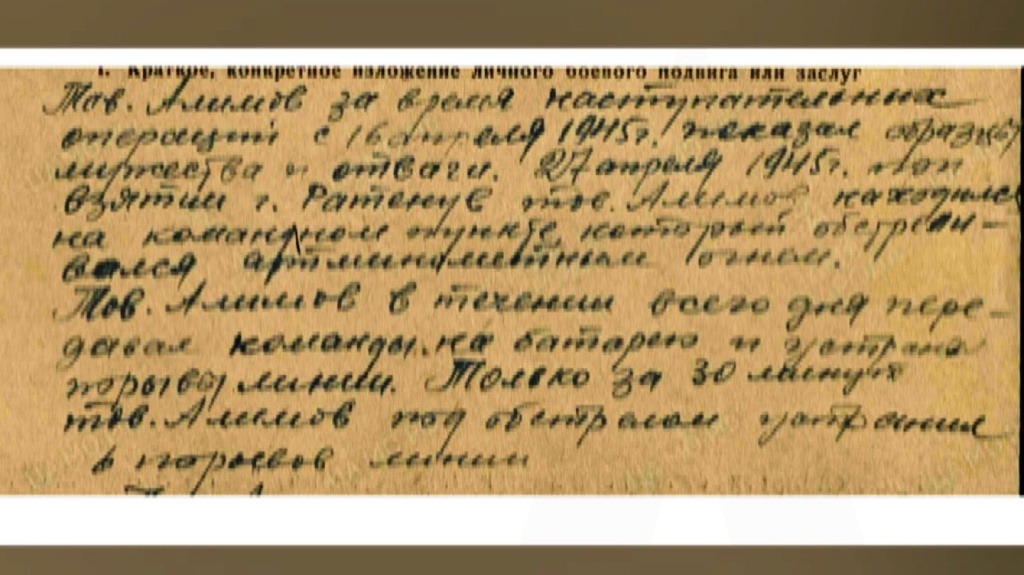 1. Краткое, конкретное изложение личного боевого подвига или заслуг
Тов. Алимов за время наступательных
операций с 16 апреля 1945г. показал образцы
мужества и отваги. 27 апреля 1945г. при
взятии г. Ратенув тов. Алимов находился
на командном пункте, который обстрели-
вался артминометным огнем.
Тов. Алимов в течении всего дня пере-
давал команды на батарею и устранял
порывы линии. Только за 30 минут
тов. Алимов под обстрелом устранил
6 порывов линии